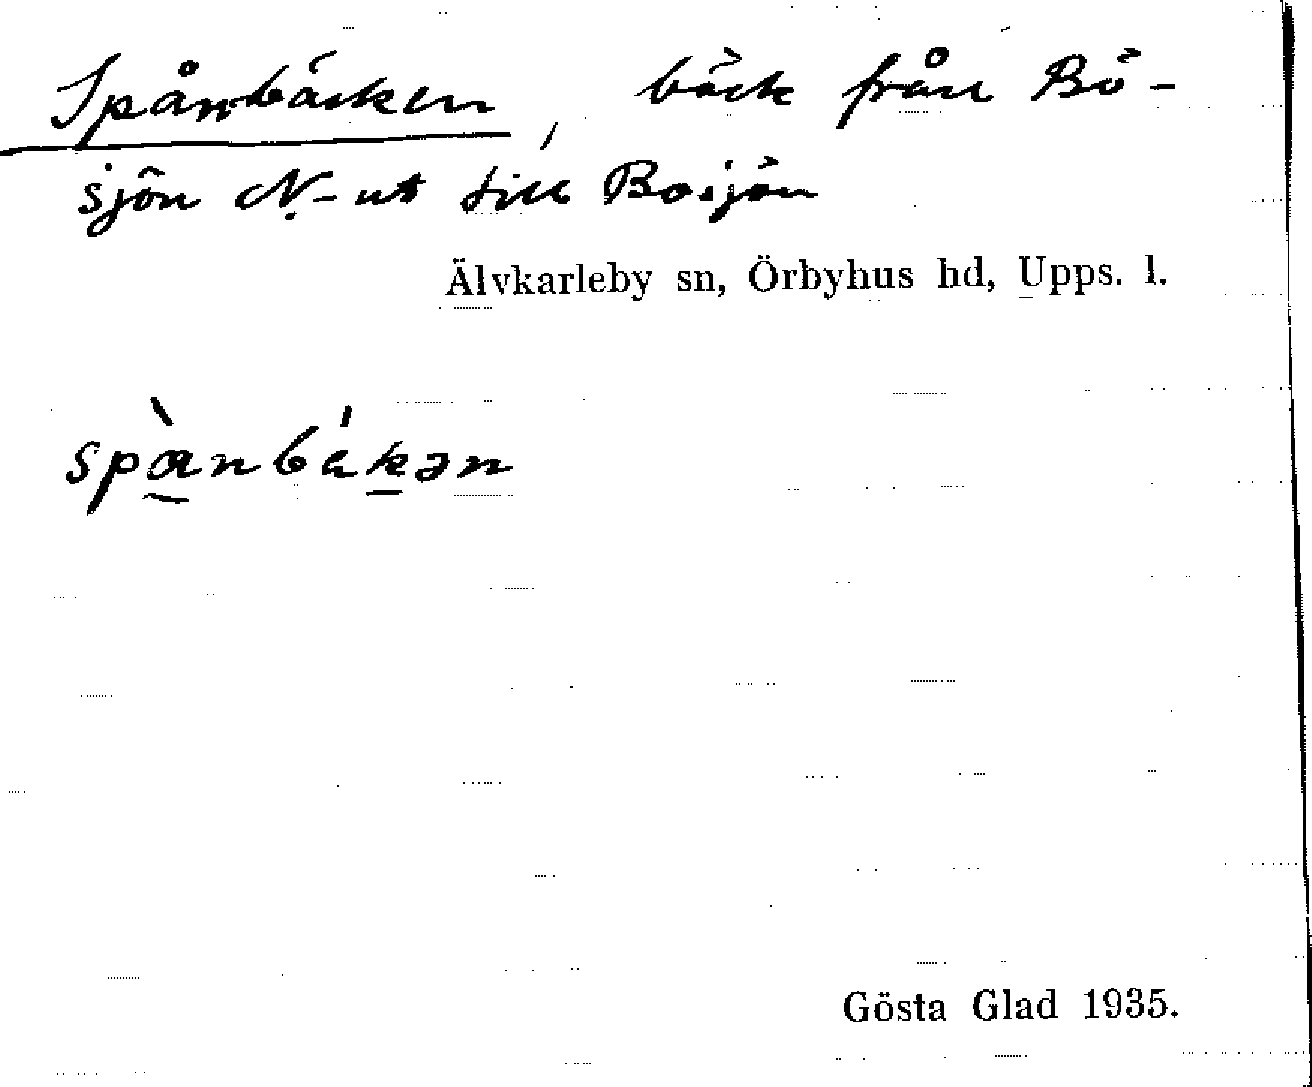 Spånbäcken, bäck från Bö-
sjön N.-ut till Bosjön
Älvkarleby sn, Örbyhus hd, Upps. l.
spànbákən
Gösta Glad 1935.